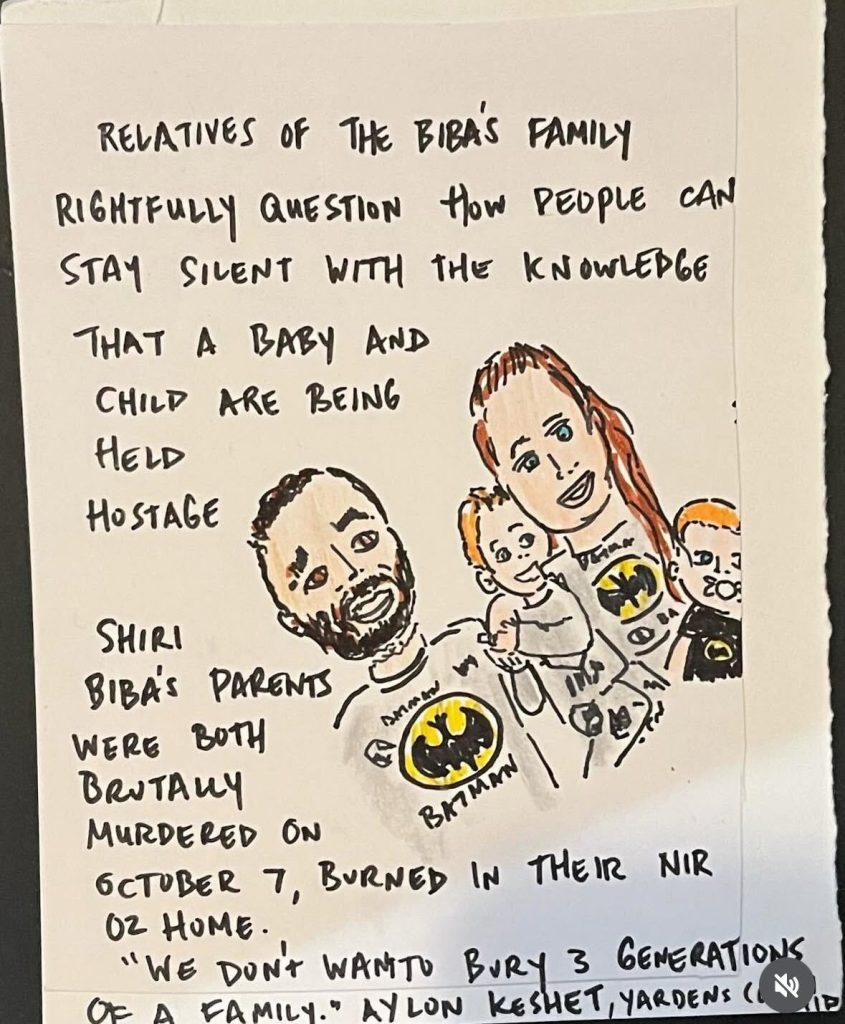 RELATIVES OF THE BIBA'S FAMILY
RIGHTFULLY QUESTION HOW PEOPLE CAN
STAY SILENT WITH THE KNOWLEDGE
THAT A BABY AND
CHILD ARE BEING
HELD
HOSTAGE
SHIRI
BIBA'S PARENTS
WERE BOTH
BRUTALLY
MURDERED ON
OCTOBER 7, BURNED IN THEIR NIR
OZ HOME.
"WE DON'T WANTO BURY 3 GENERATIONS
OF A FAMILY." AYLON KESHET, YARDENS
BATMAN
BATMAN
BATMAN